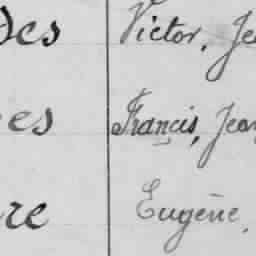 Des Victor, Je
es Francis, Jean
re Eugène,